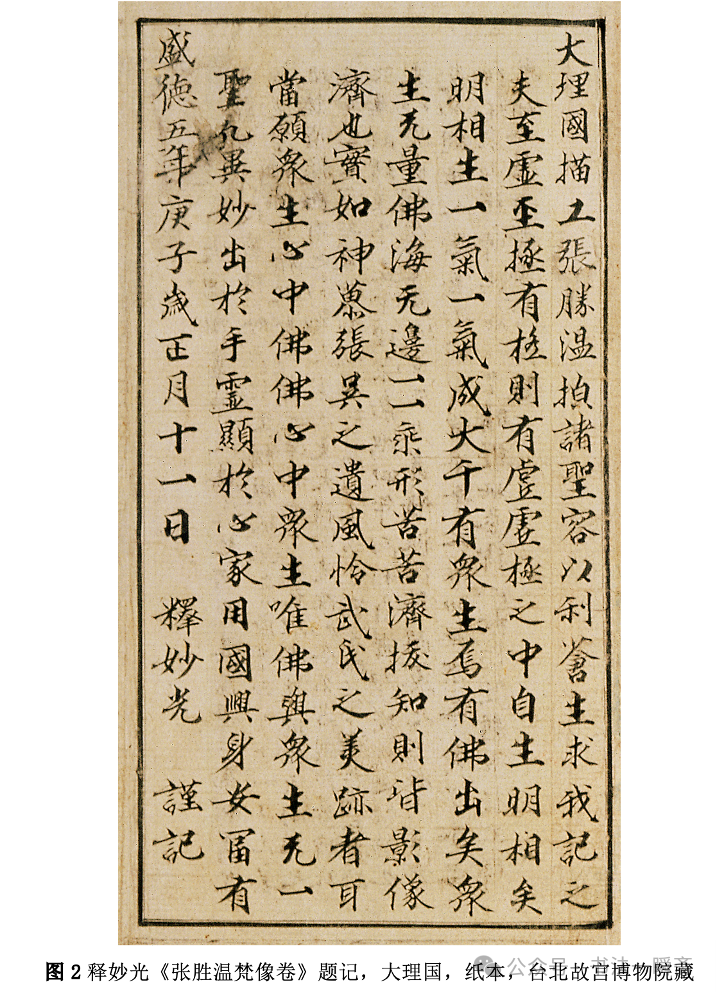 大理國描工張勝溫㧢諸聖容以利蒼生求我記之
夫至虛至極有極則有虛虛極之中自生明相矣
明相生一氣一氣成大千有衆生焉有佛出矣衆
生无量佛海无邊一一乘形苦苦濟拔知則皆影像
濟也實如神慕張吳之遺風恰武氏之美跡者耳
當願衆生心中佛佛心中衆生唯佛與衆生无一
聖凡異妙出於手靈顯於心家用國興身安富有
盛德五年庚子歲正月十一日 釋妙光 謹記
图2 释妙光《张胜温梵像卷》题记，大理国，纸本，台北故宫博物院藏
公众号·书法·暇斋